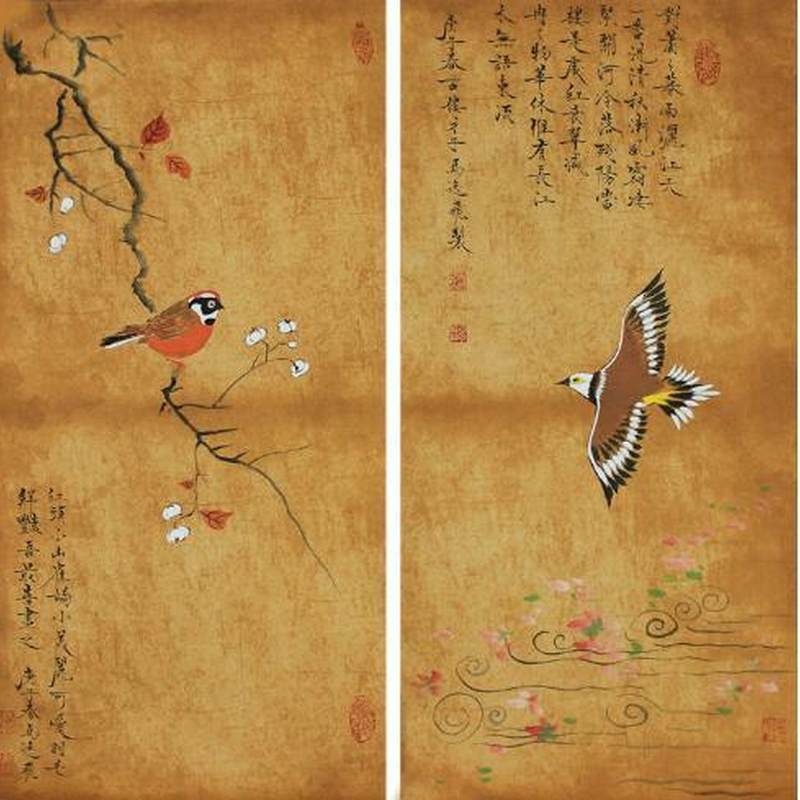 紅頭山雀嬌小美麗可愛羽毛
鮮豔吾最喜畫之 庚子春馬逸飛
對蕭〻暮雨灑江天
一番洗清秋漸風霜凄
緊關河冷落殘陽當
樓是處紅衰翠減
冉〻物華休惟有長江
水無語東流
庚子春百樓才子馬逸飛製